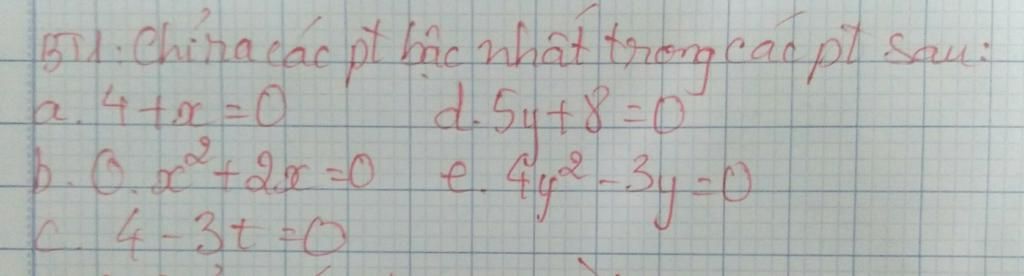 BT1: Chỉ ra các pt bậc nhất trong các pt sau:
a. 4 + x = 0 d. 5y + 8 = 0
b. 0. x² + 2x = 0 e. 4y² - 3y = 0
c. 4 - 3t = 0